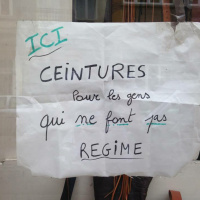 ICI
CEINTURES
Pour les gens
qui ne font pas
REGIME